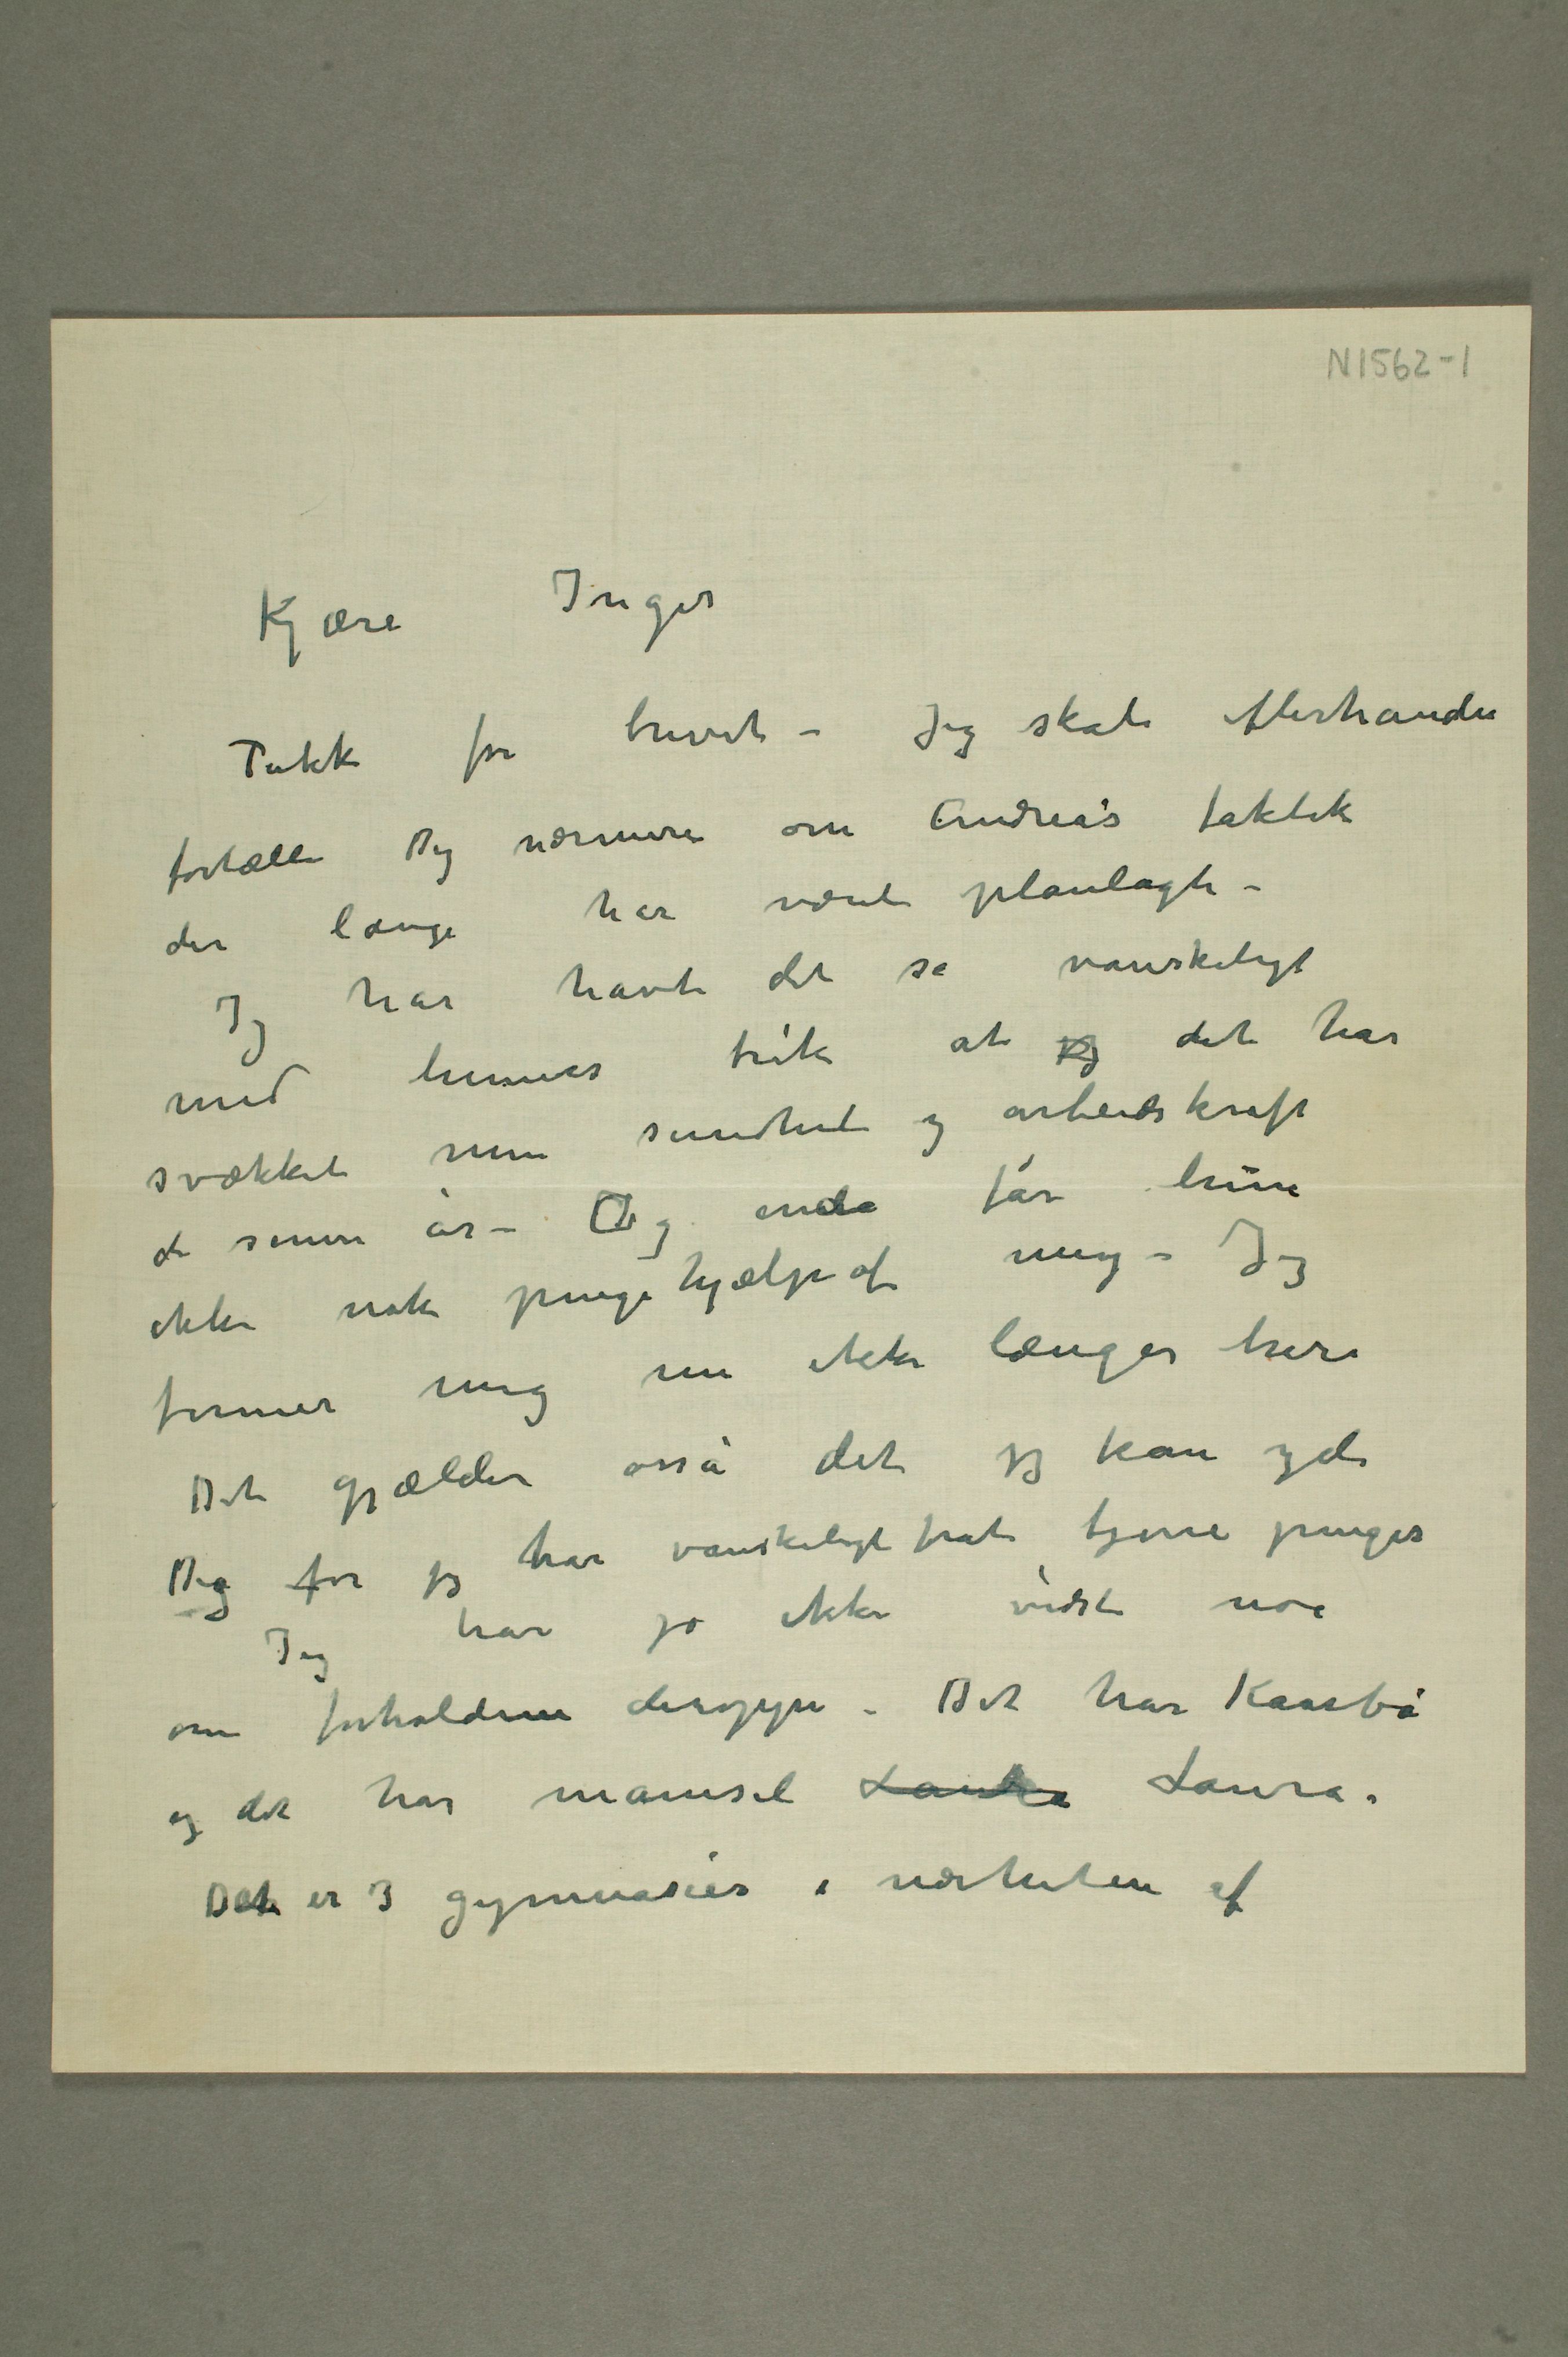 N1562-1
Kjære Inger
Takk for brevet – Jeg skal efterhånden
fortælle Dig nærmere om Andreas taktik
der længe har været planlagt –
Jeg har havt det så vanskeligt
med hennes trik at jeg det har
svækket min sundhet og arbeidskraft
de senere år – Og enda får hun
ikke nok pengehjælp af mig – Jeg
finner mig nu ikke længer heri
Det gjælder osså det jeg kan yde
Dig for jeg har vanskeligt for at tjene penger
Jeg har jo ikke vidst noe
om forholdene deroppe – Det har Kaarbø
og det har mamsel Laura Laura.
Det er 3 gymnasier i nærheten af